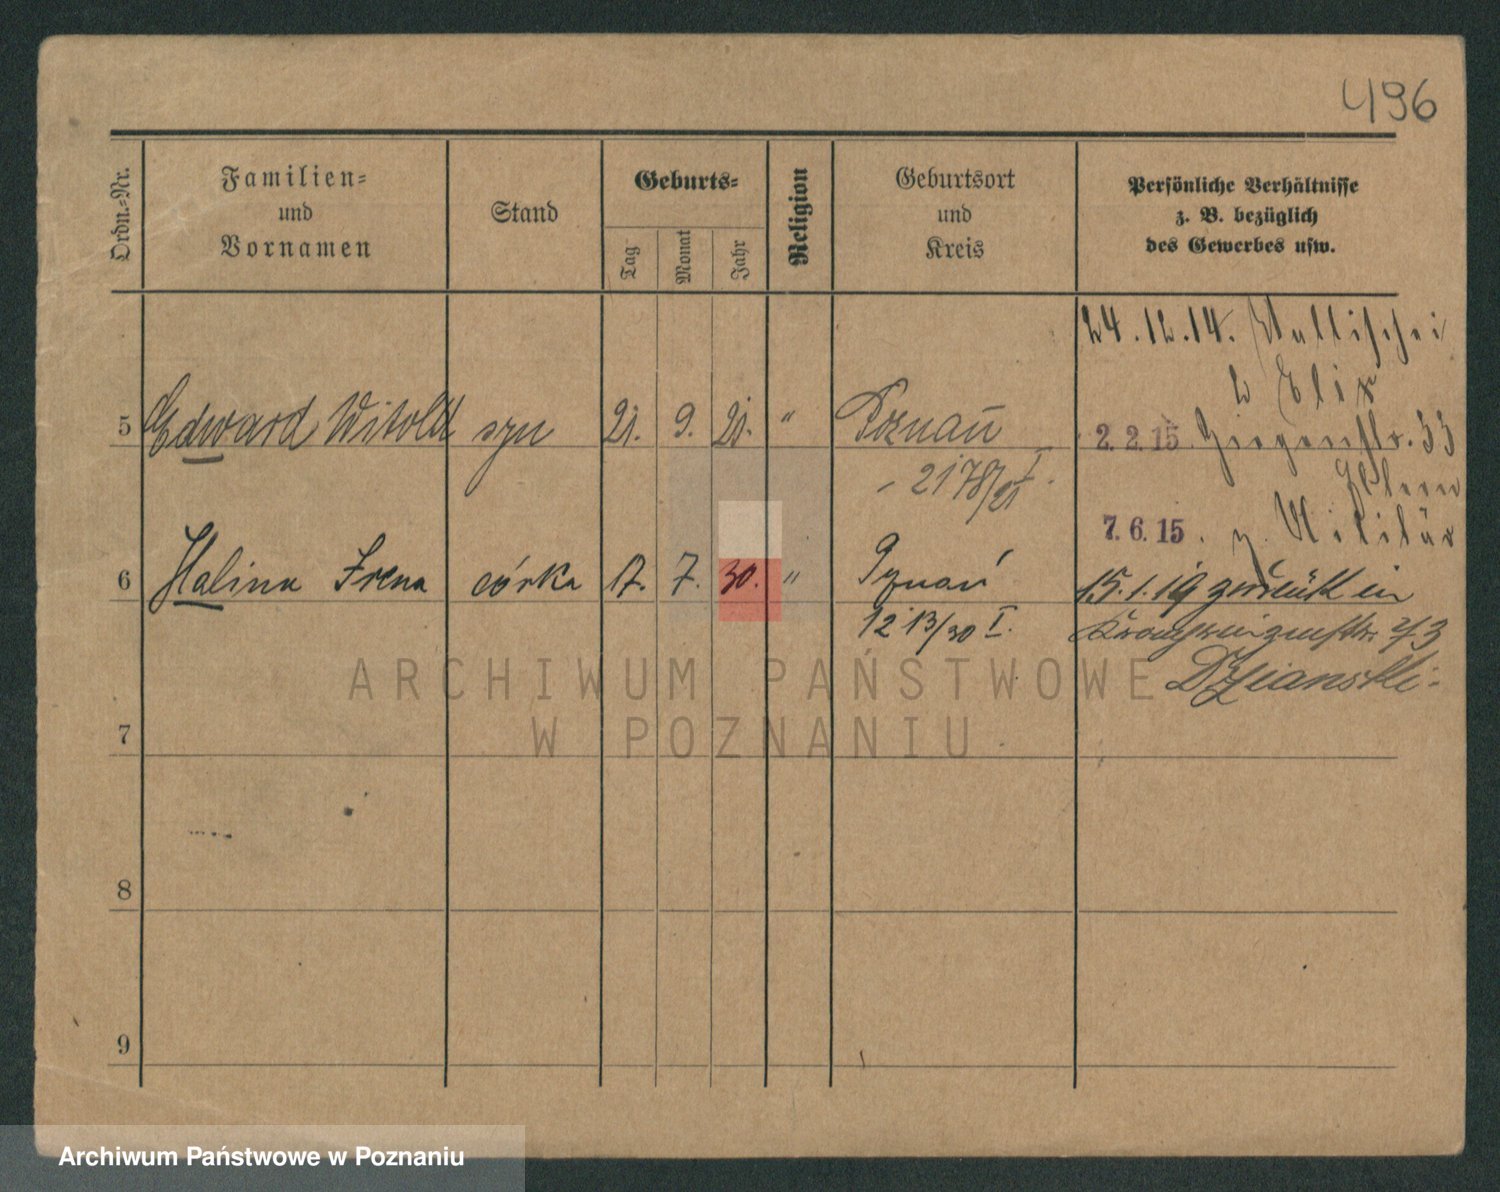 496
Ordn.-Nr.
Familien-
und
Vornamen
Stand
Geburts-
Tag
Monat
Jahr
Religion
Geburtsort
und
Kreis
Persönliche Verhältnisse
z. B. bezüglich
des Gewerbes usw.
24.12.14. Wallischei
b
2.2.15. 33
Eltern
7.6.15. z. Militär
15.1.19 zurück in
Kronprinzenstr. 73
5 Edward Witold syn 21. 9. 21. " Poznań
2178/21 I
6 Halina Irena córka 17. 7. 30. " Poznań
1213/30 I.
7
8
9
ARCHIWUM PAŃSTWOWE
W POZNANIU
Archiwum Państwowe w Poznaniu